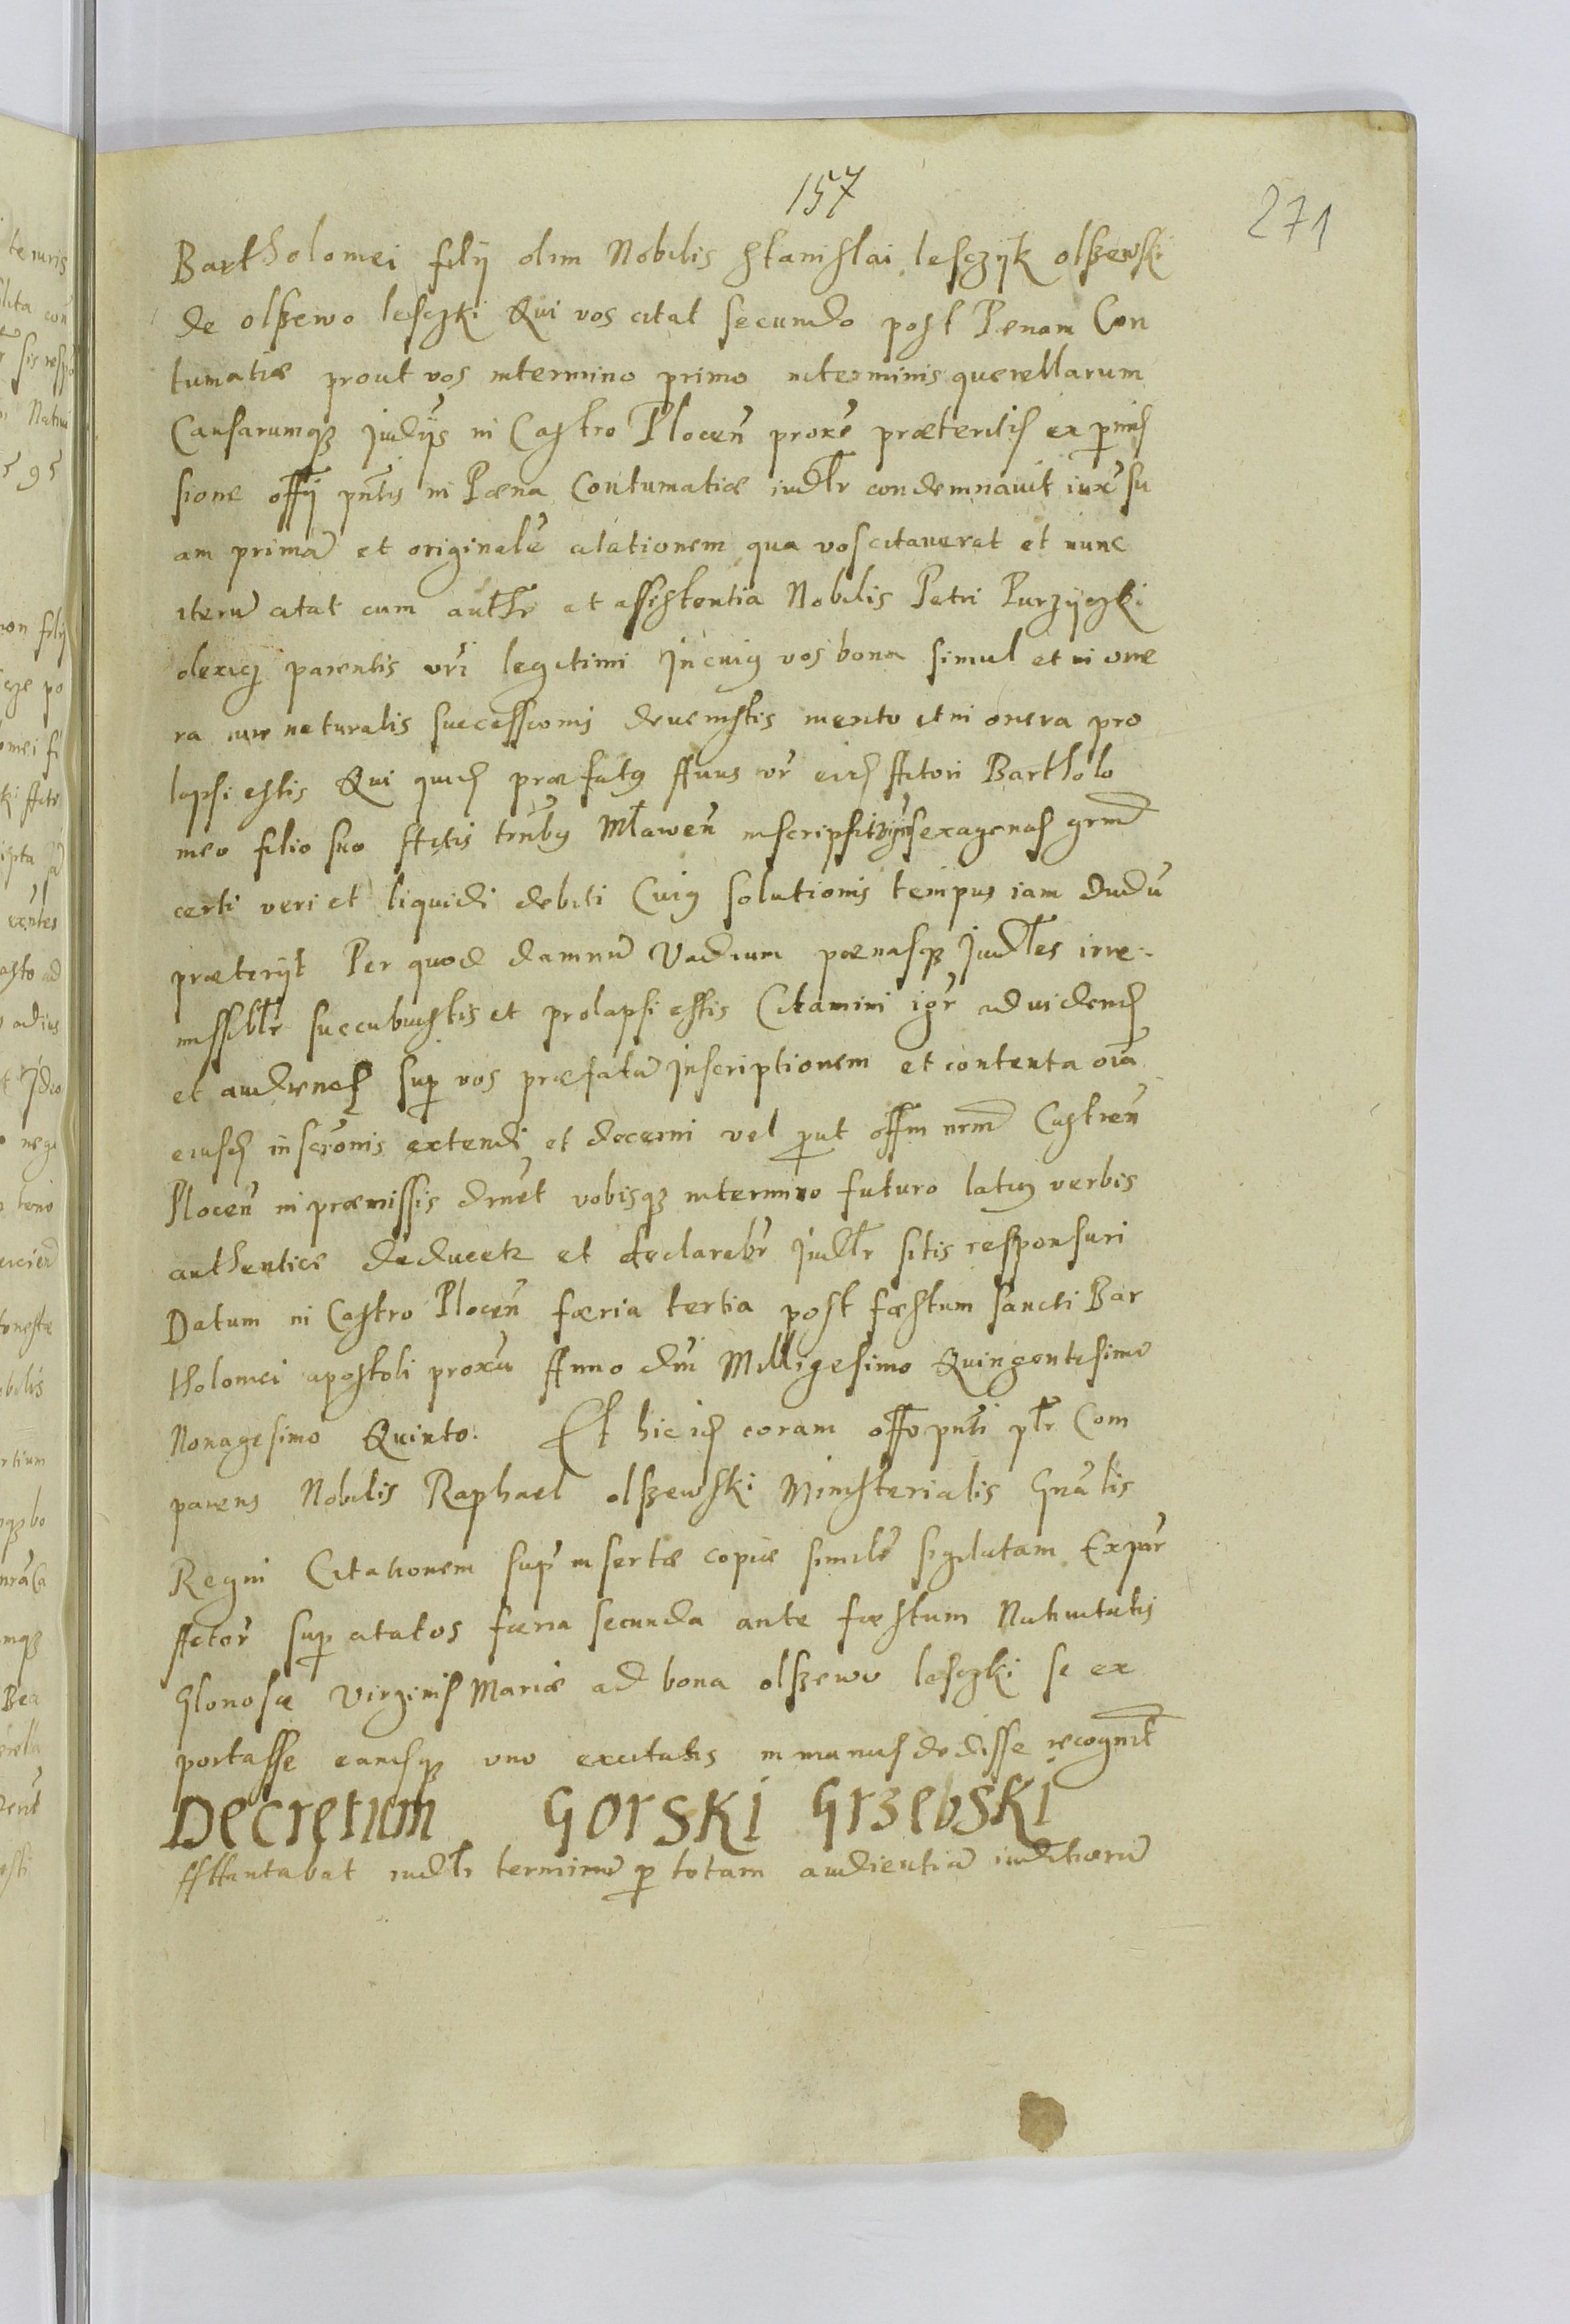 157
271
Bartholomei filij olim Nobilis Stanislai lesczyk olszewski
de olszewo lesczki Qui vos citat secundo post Penam Con
tumatiæ prout vos in termino primo in terminis querellarum
Causarumq3 Judijs in Castro Plocen̄ proxe præteritis ex p̄mis
sione offij pn̄tis in Pæna Contumatiæ iudlr condemnavit iux su
am primā et originalē citationem qua vos citaverat et nunc
iterū citat cum authr et assistentia Nobilis Petri Purzyczki
olexicz parentis vr̄i legitimi In cuig vos bona simul et in one
ra iure naturalis successionis devenistis merito et in onera pro
lapsi estis Qui quid præfatg Avus vr̄ eid Actori Bartholo
meo filio suo Actis trn̄bg Mlawen̄ inscripsit sexagenas grm
certi veri et liquidi debiti Cuig solutionis tempus iam dudū
præterijt Per quod damnū Vadium pænasq3 Judles irre-
missiblr succubuistis et prolapsi estis Citamini igr̄ ad videnđ
et audiend sup vos præfatā Inscriptionem et contenta oīa
eiusđ inscrōnis extendi et decerni vel put offm nrm Castren̄
Plocen̄ in præmissis drnēt vobisq3 in termino futuro latig verbis
authentice deducetr et declarabr̄ Judlr sitis responsuri
Datum in Castro Plocen̄ færia tertia post fæstum sancti Bar
tholomei apostoli proxū Anno dn̄i Milligesimo Quingentesimo
Nonagesimo Quinto. Et hic iđ coram offo pn̄ti plr Com
parens Nobilis Raphael olszewski Ministerialis Gnālis
Regni Citationem sup̄ insertæ copiæ similē sigilatam Ex par
Actor̄ sup citatos færia secunda ante fæstum Nativitatis
Gloriosæ Virginis Mariæ ad bona olszewo lesczki se ex
portasse eamđq3 uno ex citatis in manus dedisse recognit
Decretum Gorski Grzebski
Attentabat iudlr terminū p totam audientiā iuditiorū